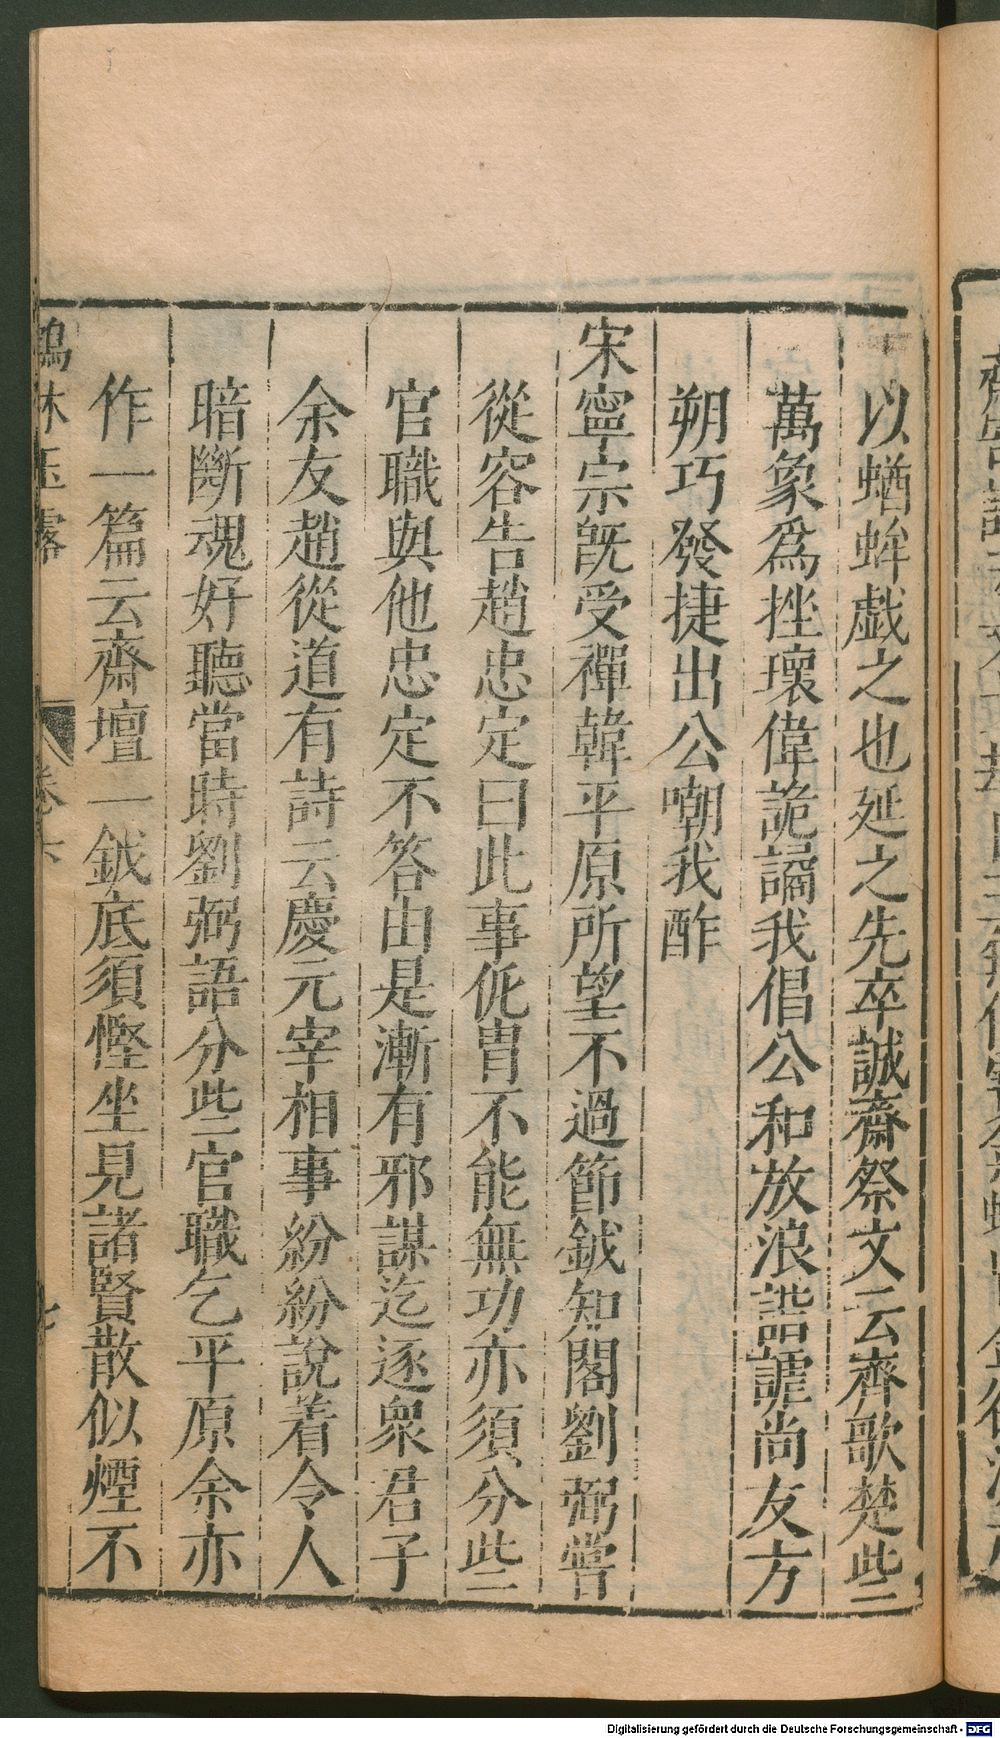 以蝤蛑戱之也延之先卒誠齋祭文云齊歌楚些
萬象爲挫瓌偉詭譎我倡公和放浪諧謔尚友方
朔巧發捷出公嘲我酢
宋寧宗旣受禪韓平原所望不過節鉞知閣劉弼嘗
從容告趙忠定曰此事侂胄不能無功亦須分些
官職與他忠定不答由是漸有邪謀迄逐衆君子
余友趙從道有詩云慶元宰相事紛紛說着令人
暗斷魂好聽當時劉弼語分些官職乞平原余亦
作一篇云齋壇一鉞底須慳坐見諸賢散似煙不
鶴林玉露 卷六 七
Digitalisierung gefördert durch die Deutsche Forschungsgemeinschaft - DFG